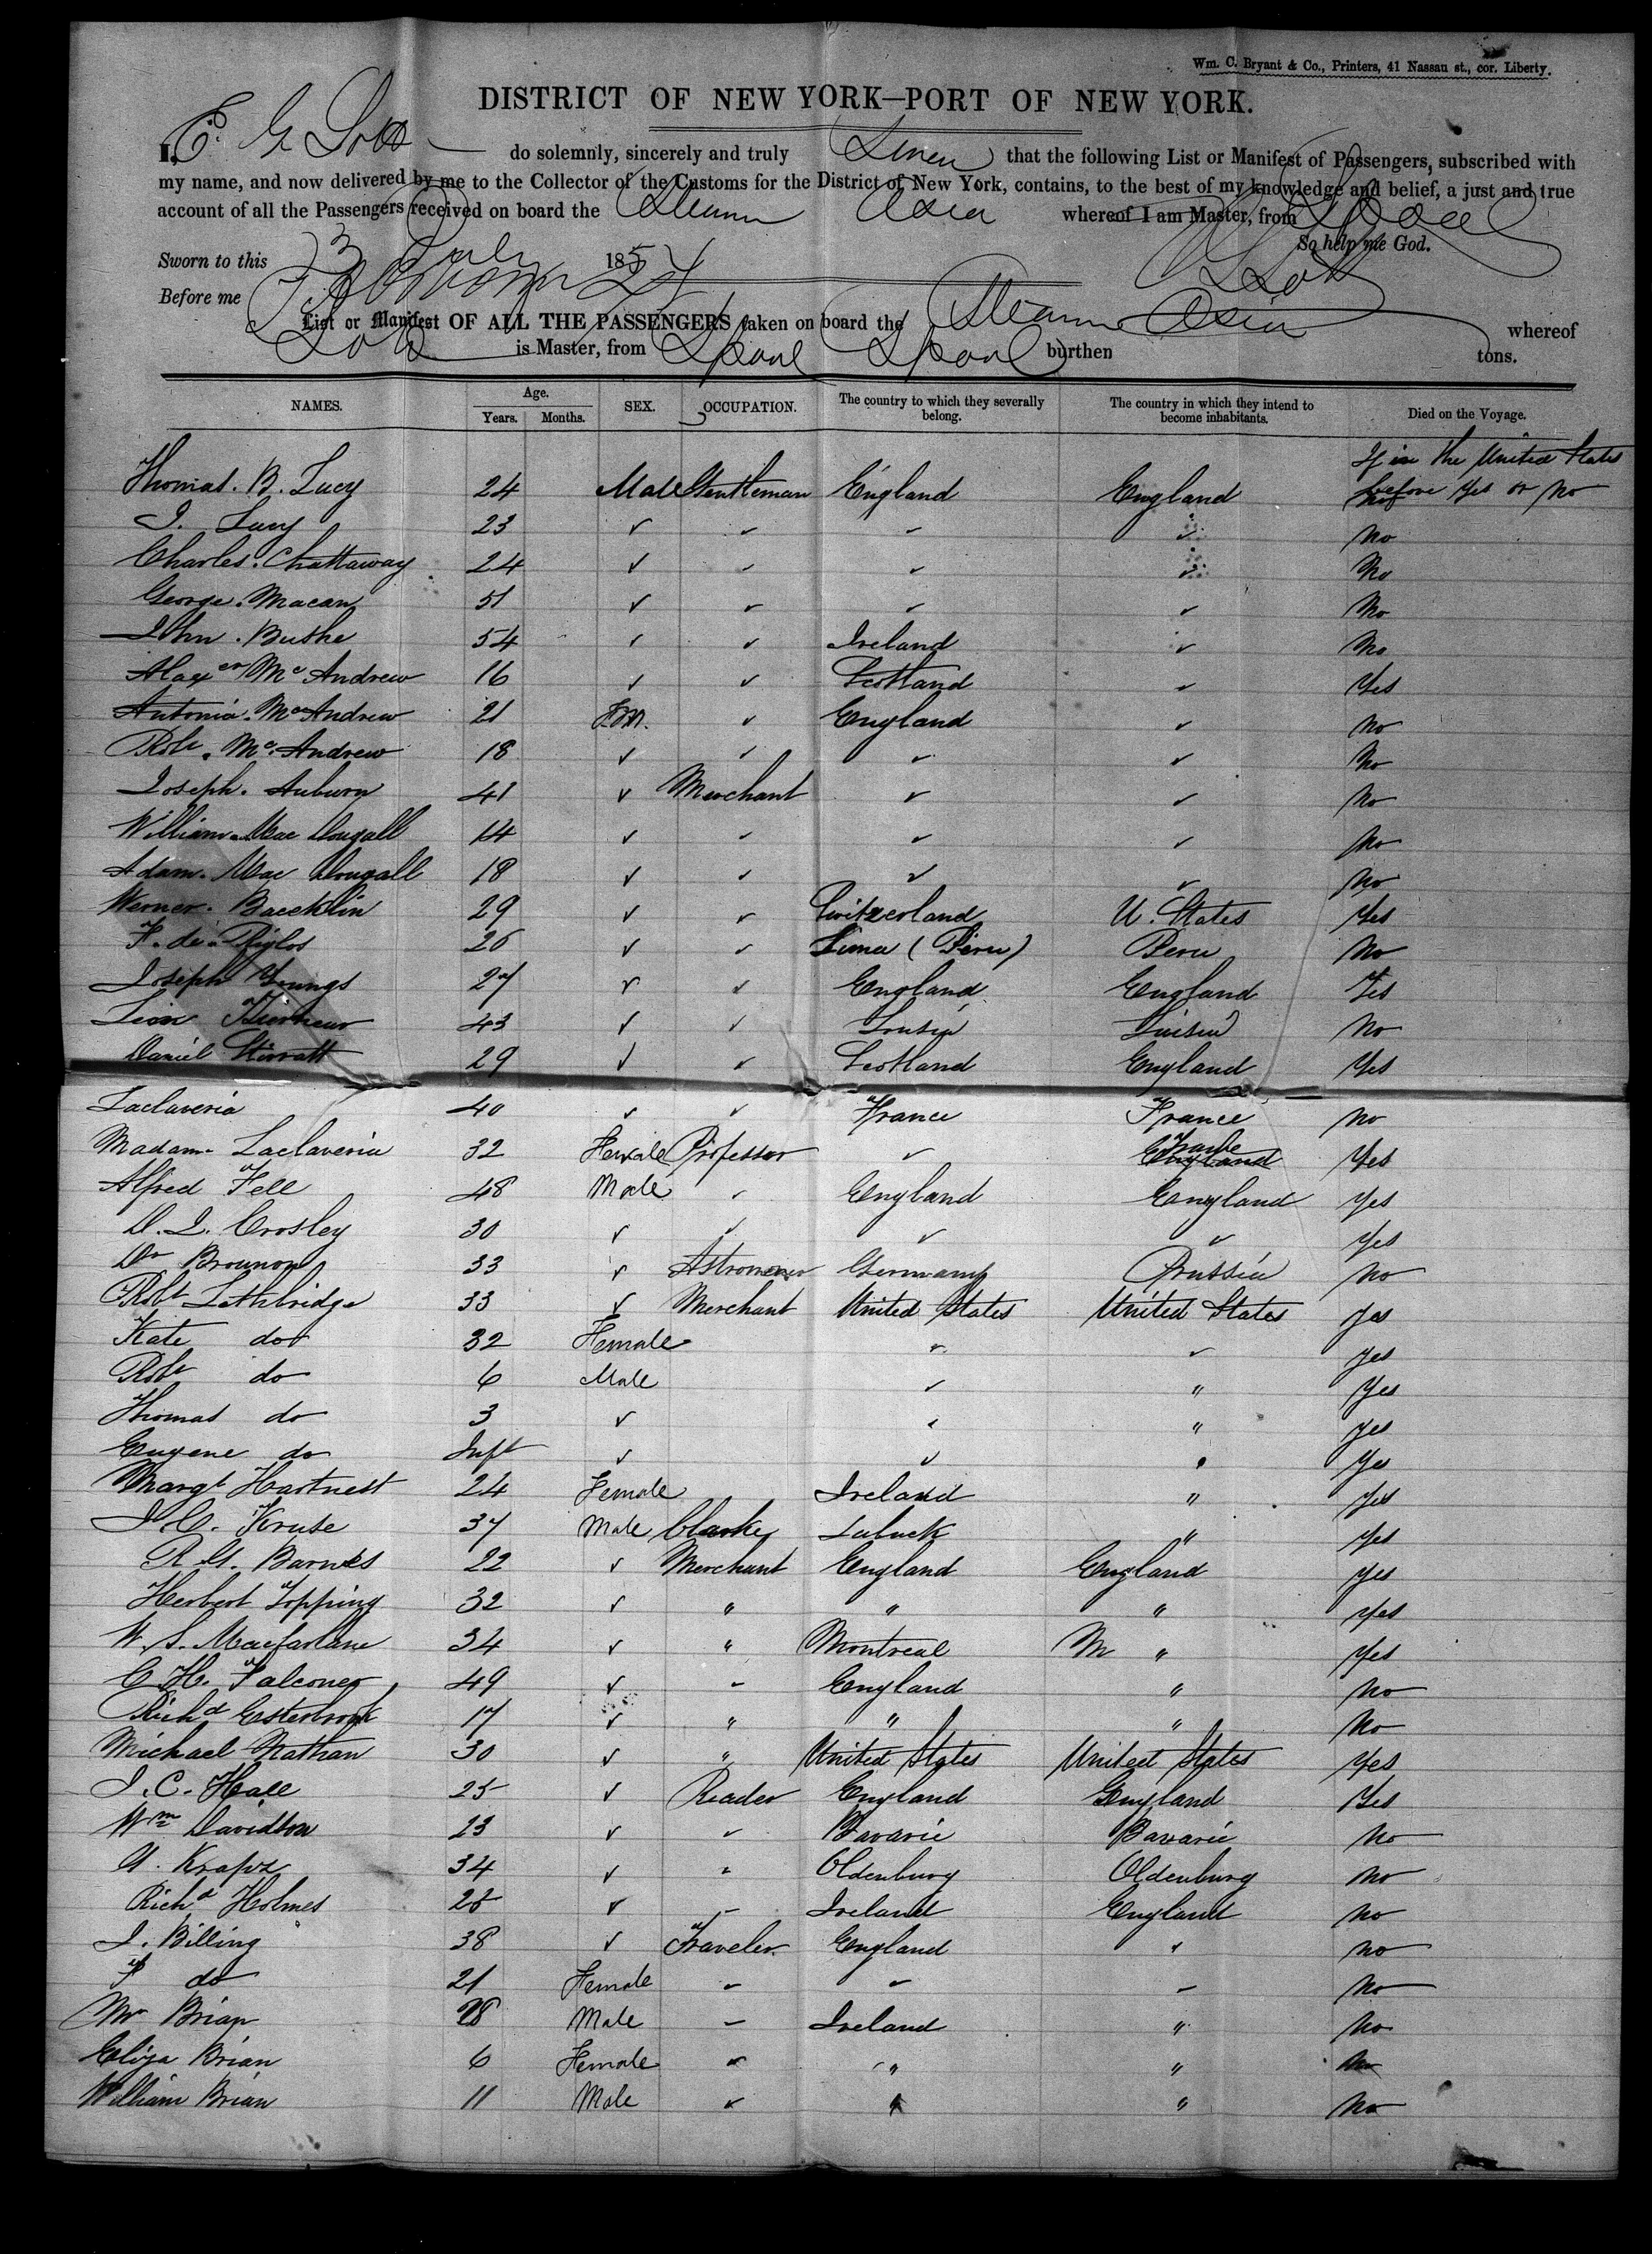 Wm. C. Bryant & Co., Printers, 41 Nassau st., cor. Liberty.
DISTRICT OF NEW YORK—PORT OF NEW YORK.
I, E. G. Lott do solemnly, sincerely and truly Swear that the following List or Manifest of Passengers, subscribed with
my name, and now delivered by me to the Collector of the Customs for the District of New York, contains, to the best of my knowledge and belief, a just and true
account of all the Passengers received on board the Steamr Asia whereof I am Master, from Lpool
So help me God.
Sworn to this 3 July 1854 E G Lott
Before me
List or Manifest OF ALL THE PASSENGERS taken on board the Steamr Asia whereof
Lott is Master, from Lpool Lpool burthen tons.
NAMES. Age. Years. Months. SEX. OCCUPATION. The country to which they severally belong. The country in which they intend to become inhabitants. Died on the Voyage.
If in the United States
Thomas. B. Lucy 24 Male Gentleman England England before Yes or No
J. Lucy 23 ✓ ✓ ✓ ✓ No
Charles. Chattaway 24 ✓ ✓ ✓ ✓ No
George. Macan 51 ✓ ✓ ✓ ✓ No
John. Bushe 54 ✓ ✓ Ireland ✓ No
Alexer Mc Andrew 16 ✓ ✓ Scotland ✓ Yes
Antonia. Mc Andrew 21 Fm. ✓ England ✓ No
Robt. Mc. Andrew 18 ✓ ✓ ✓ ✓ No
Joseph. Aubury 41 ✓ Merchant ✓ ✓ No
William. Mac Dougall 14 ✓ ✓ ✓ ✓ No
Adam. Mac Dougall 18 ✓ ✓ ✓ ✓ No
Werner. Baecklin 29 ✓ ✓ Switzerland U. States Yes
F. de. Riglos 26 ✓ ✓ Lima (Peru) Peru No
Joseph Youngs 27 ✓ ✓ England England Yes
Leon 43 ✓ ✓ No
Daniel Stirratt 29 ✓ ✓ Scotland England Yes
Laclaveria 40 ✓ ✓ France France No
Madam Laclaveria 32 Female Professor ✓ France England Yes
Alfred Fell 48 Male ✓ England England Yes
D. L. Crosley 30 ✓ ✓ ✓ ✓ Yes
Dr Brounow 33 ✓ Astronomer Germany Prussia No
Robt Lethbridge 33 ✓ Merchant United States United States Yes
Kate do 32 Female ✓ ✓ Yes
Robt do 6 Male ✓ " Yes
Thomas do 3 ✓ ✓ " Yes
Eugene do Inft ✓ ✓ " Yes
Margt Hartnett 24 Female Ireland " Yes
J. C. Kruse 37 Male Clarke Lubeck " Yes
R. G. Barnes 22 ✓ Merchant England England Yes
Herbert Topping 32 ✓ " " " Yes
W. S. Macfarlane 34 ✓ " Montreal M " Yes
C. H. Falconer 49 ✓ " England " No
Richd Esterbrook 17 ✓ " " " No
Michael Nathan 30 ✓ " United States United States Yes
J. C. Hall 25 ✓ Reader England England Yes
Wm Davidson 23 ✓ ✓ Bavarie Bavarie No
34 ✓ " Oldenburg Oldenburg No
Richd Holmes 25 ✓ " Ireland England No
J. Billing 38 ✓ Traveler England " No
F do 21 Female " ✓ " No
Mr Brian 28 Male " Ireland " No
Eliza Brian 6 Female " " " No
William Brian 11 Male ✓ " " No